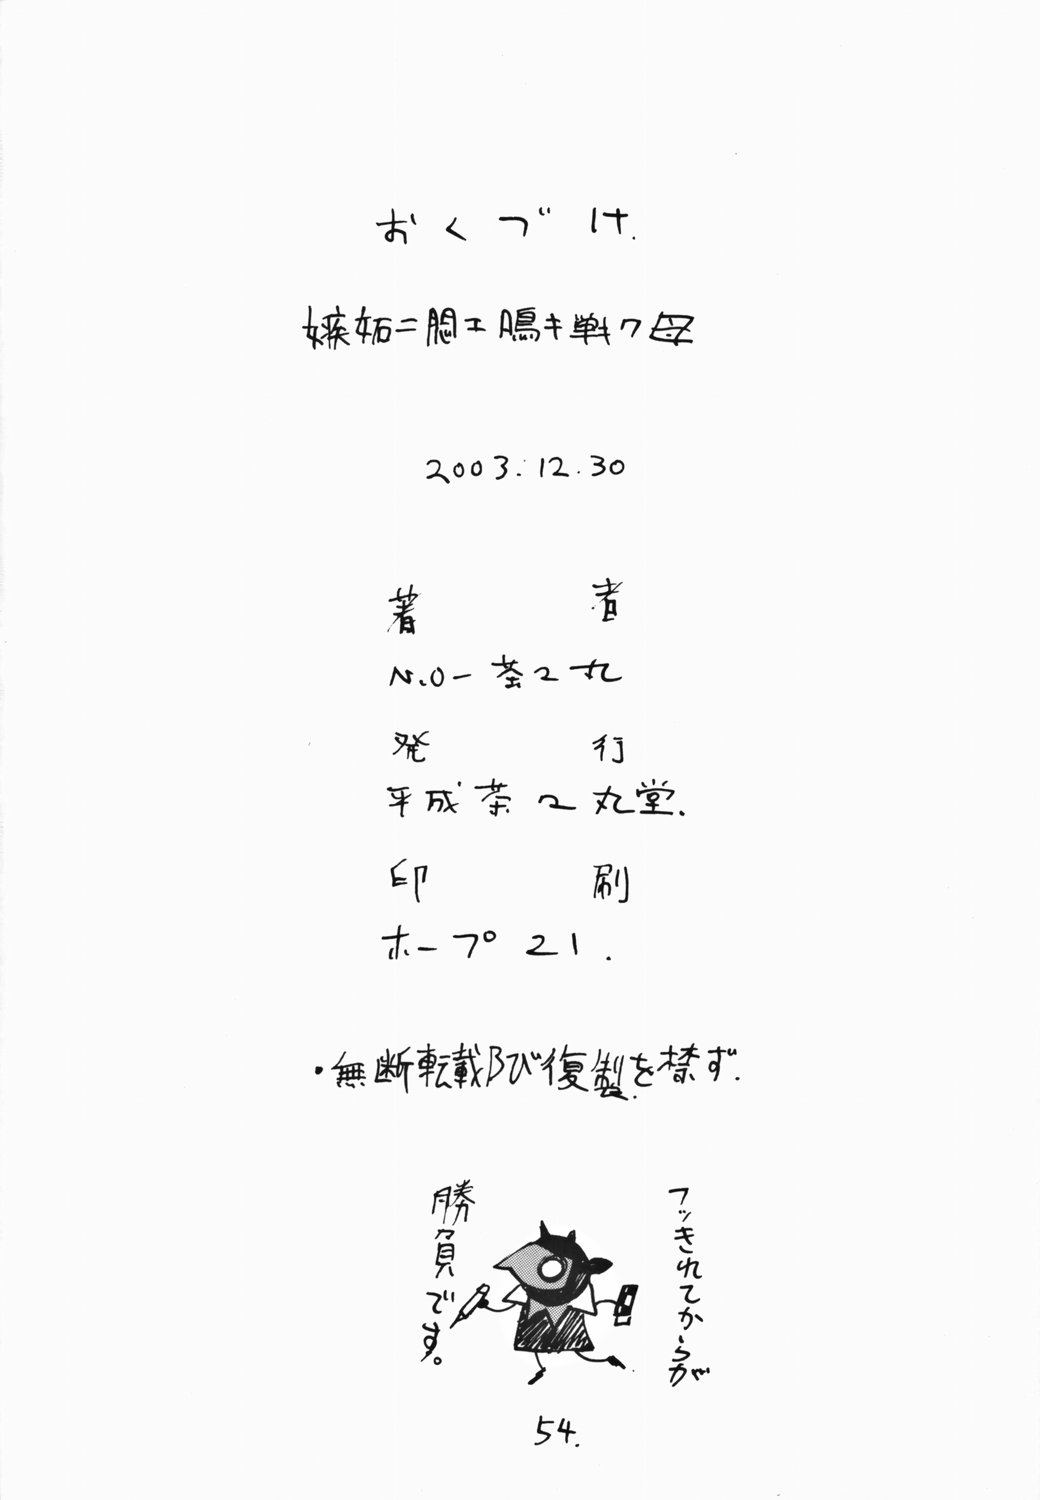 おくづけ.
嫉妬ニ悶エ鳴キ戦ク母
2003.12.30
著者
N.O-茶々丸
発行
平成茶々丸堂.
印刷
ホープ21.
・無断転載及び復製を禁ず.
フッきれてからが
勝負です。
54.